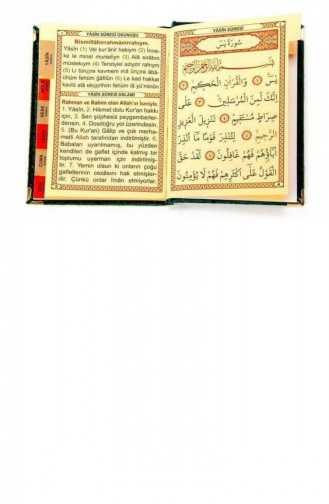 YÂSİN SÛRESİ OKUNUŞU
Bismillâhirrahmânirrahıym.
Yâsîn (1) Vel kur'ânil hakiym (2) İnne-
ke le minel murseliyn (3) Alâ sırâtın
müstekıym (4) Tenziylel aziyzir rahıym
(5) Li tünzira kavmem mâ ünzira âbâ-
ühüm fehüm ğâfilûn (6) Le kad hakkal
kavlü alâ ekserihim fehüm lâ yü'minûn
YÂSİN SÛRESİ ANLAMI
Rahman ve Rahim olan Allah'ın ismiyle.
1. Yâsîn, 2. Hikmet dolu Kur'an hakkı
için, 3. Sen şüphesiz peygamberler-
densin. 4. Dosdoğru yol üzerindesin.
5. (Bu Kur'an) Gâlip ve çok merha-
metli Allah tarafından indirilmiştir. 6.
Babaları uyarılmamış, bu yüzden
kendileri de gaflet içinde kalmış bir
toplumu uyarman için indirilmiş-
tir. 7. Yemin olsun ki onların çoğu
gafletlerinin cezâsını hak etmişler-
dir. Çünkü onlar îmân etmiyorlar.
YÂSİN SÛRESİ
سُورَةُ يٰسٓ
بِسْمِ اللّٰهِ الرَّحْمٰنِ الرَّحِيمِ
يٰسٓ ﴿١﴾ وَالْقُرْاٰنِ الْحَكِيمِ ﴿٢﴾
اِنَّكَ لَمِنَ الْمُرْسَلِينَ ﴿٣﴾ عَلٰى
صِرَاطٍ مُسْتَقِيمٍ ﴿٤﴾ تَنْزِيلَ الْعَزِيزِ
الرَّحِيمِ ﴿٥﴾ لِتُنْذِرَ قَوْمًا مَٓا اُنْذِرَ
اٰبَٓاؤُهُمْ فَهُمْ غَافِلُونَ ﴿٦﴾ لَقَدْ حَقَّ
الْقَوْلُ عَلٰٓى اَكْثَرِهِمْ فَهُمْ لَا يُؤْمِنُونَ